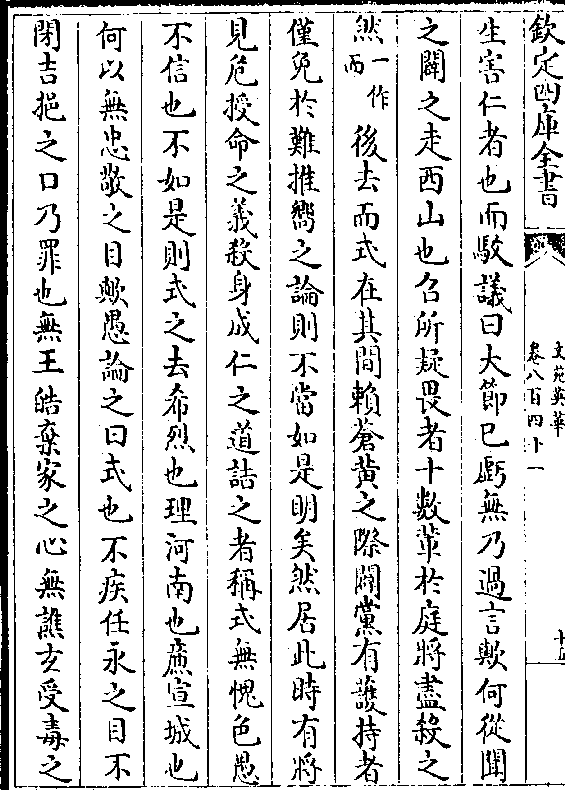 欽定四庫全書
文苑英華
卷八百四十一
生害仁者也而駮議曰大節已虧無乃過言歟何從闓
之闢之走西山也召所疑畏者十數輩於庭將盡殺之
然一作而後去而式在其間賴蒼黄之際闢黨有護持者
僅免於難推嚮之論則不當如是明矣然居此時有將
見危授命之義殺身成仁之道詰之者稱式無愧色愚
不信也不如是則式之去希烈也理河南也廉宣城也
何以無忠敬之目歟愚論之曰式也不疾任永之目不
閉吉挹之口乃罪也無王皓棄家之心無譙玄受毒之